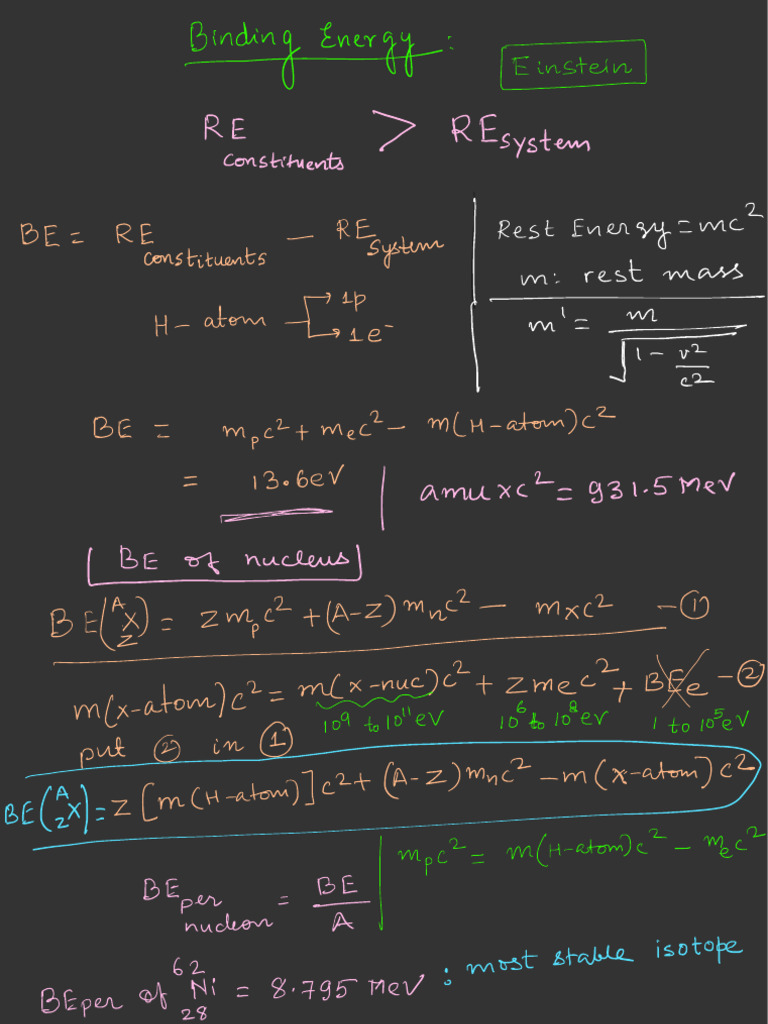 Binding Energy :
Einstein
RE constituents > RE system
BE = RE constituents — RE system
Rest Energy = mc²
m: rest mass
H-atom → 1p
→ 1e⁻
m' = m / √(1 - v²/c²)
BE = m_pc² + m_ec² - m(H-atom)c²
= 13.6eV
amu x c² = 931.5 MeV
BE of nucleus
BE(^A_Z X) = Zm_pc² + (A-Z)m_nc² - m_xc² - ①
m(x-atom)c² = m(x-nuc)c² + Zm_ec² + BEe - ②
10⁹ to 10¹¹ eV 10⁶ to 10⁸ eV 1 to 10⁵ eV
put ② in ①
BE(^A_Z X) = Z[m(H-atom)]c² + (A-Z)m_nc² - m(x-atom)c²
m_pc² = m(H-atom)c² - m_ec²
BE per nucleon = BE / A
BEper of ^62_28 Ni = 8.795 MeV : most stable isotope